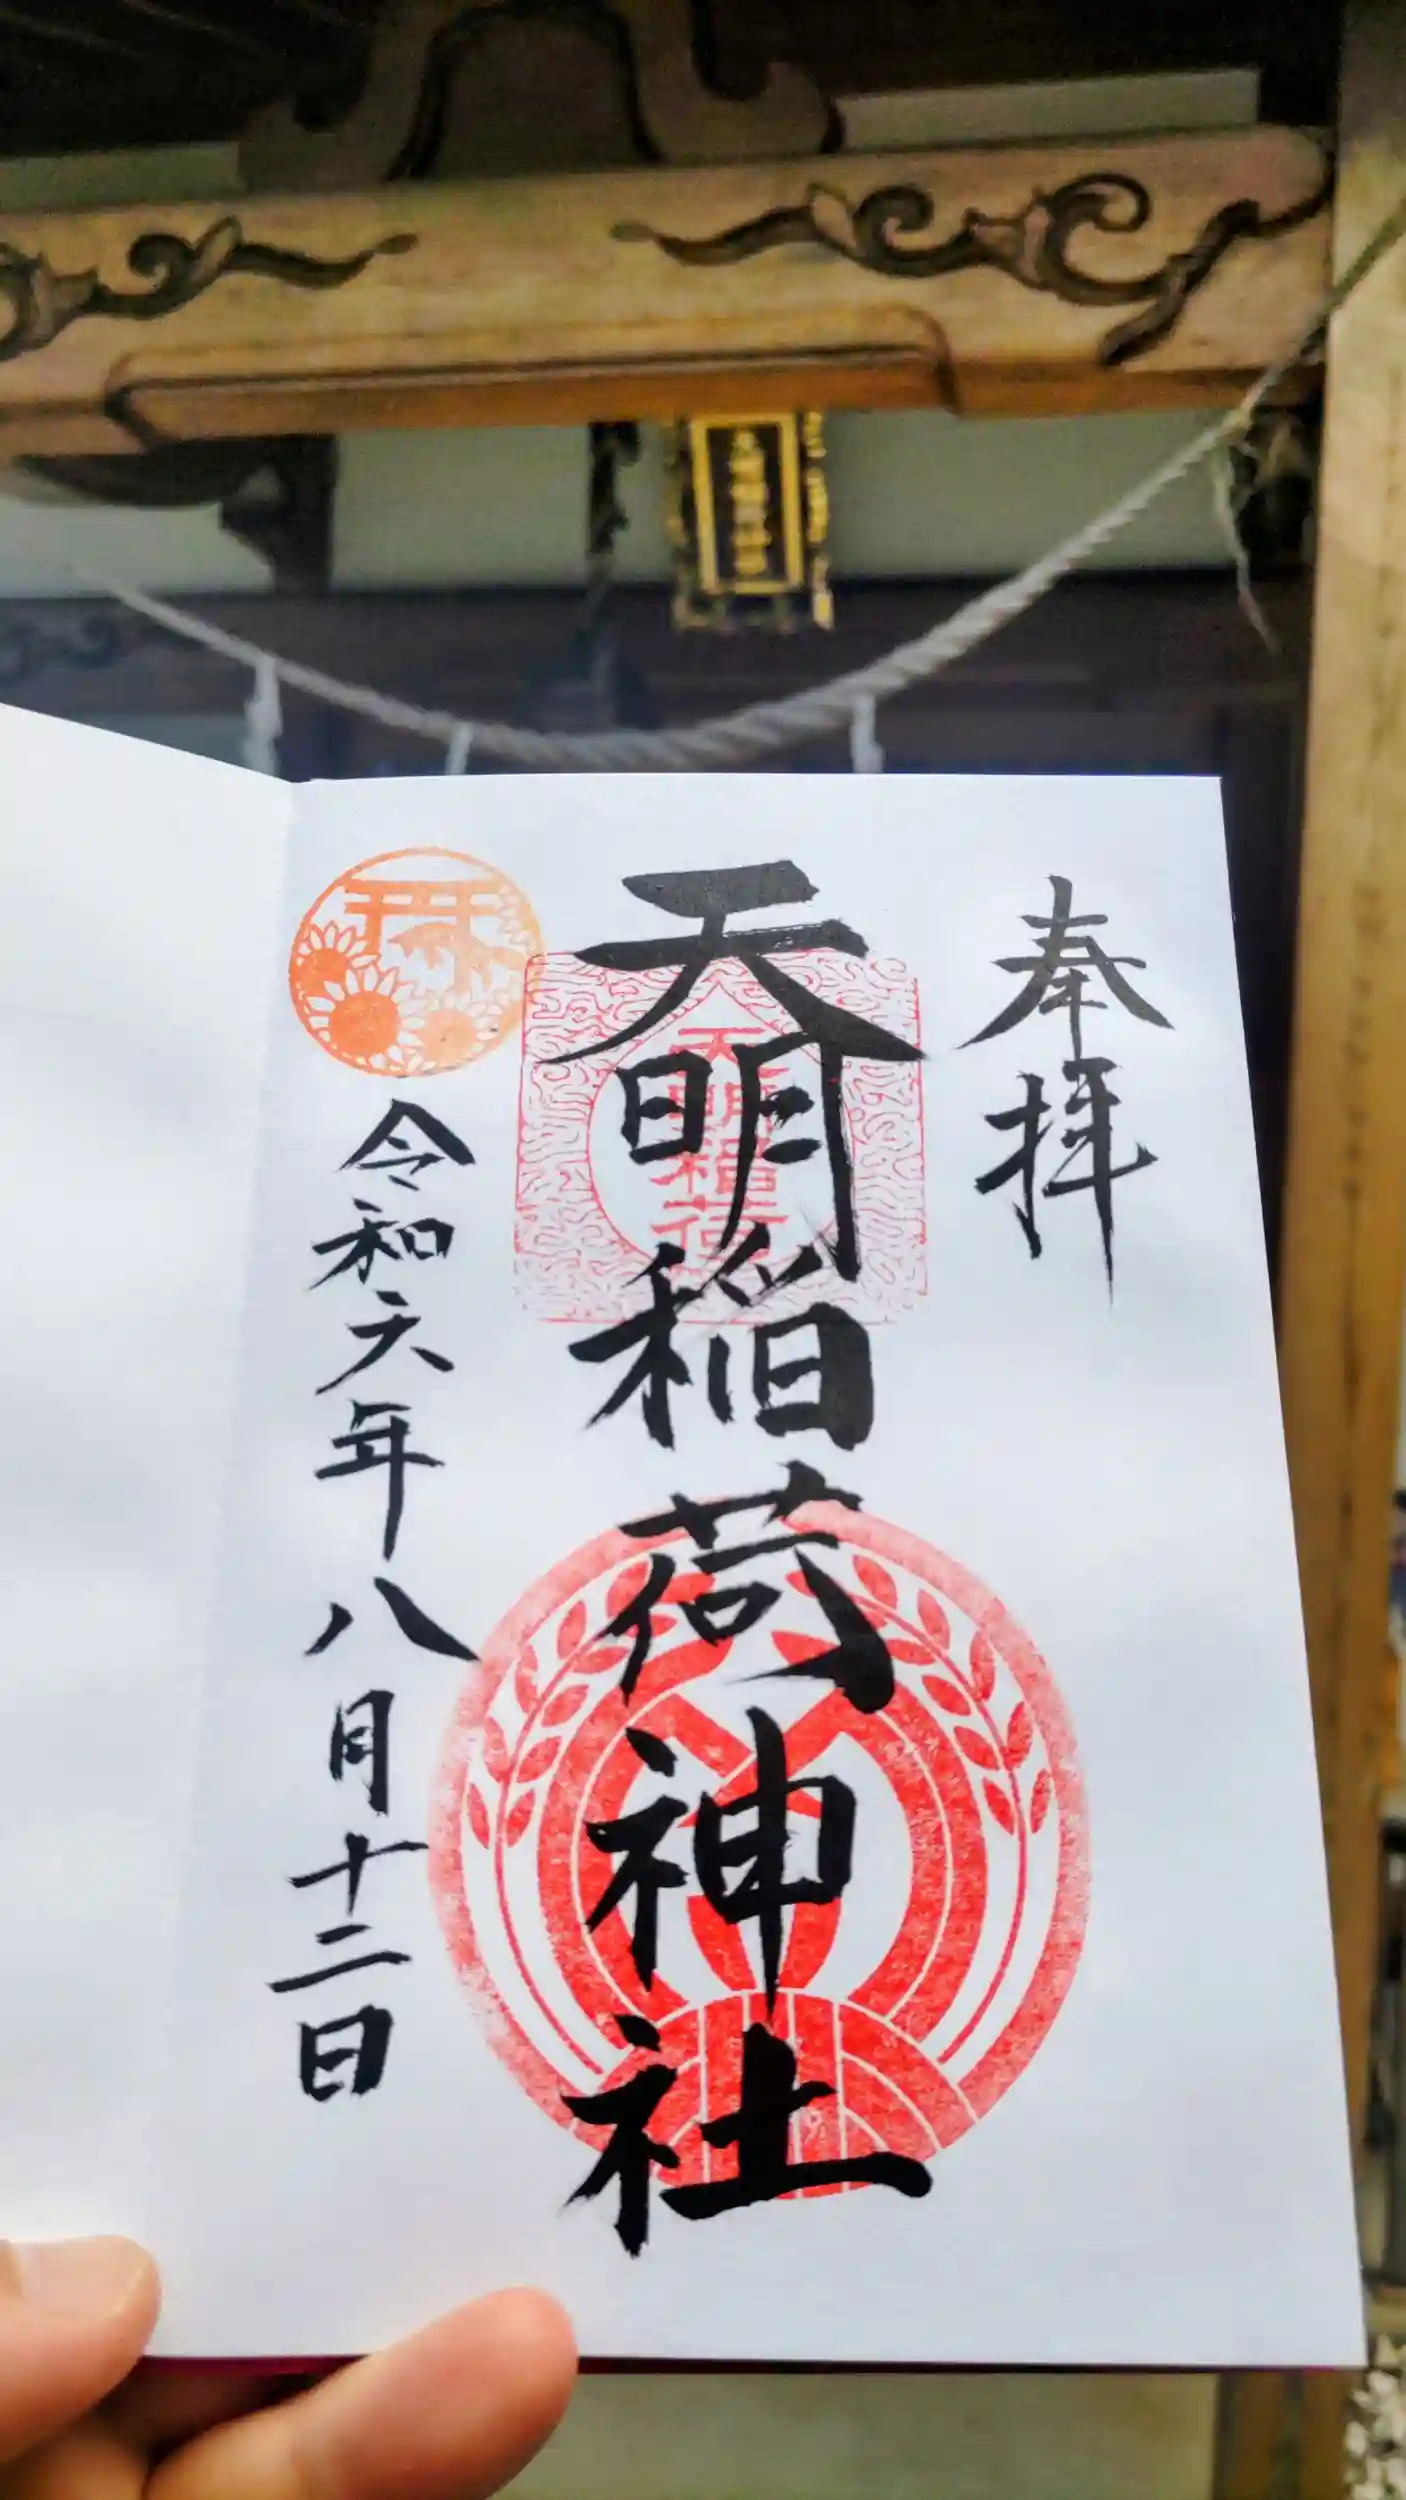 奉拝
天明稲荷神社
天明稲荷
令和六年八月十二日